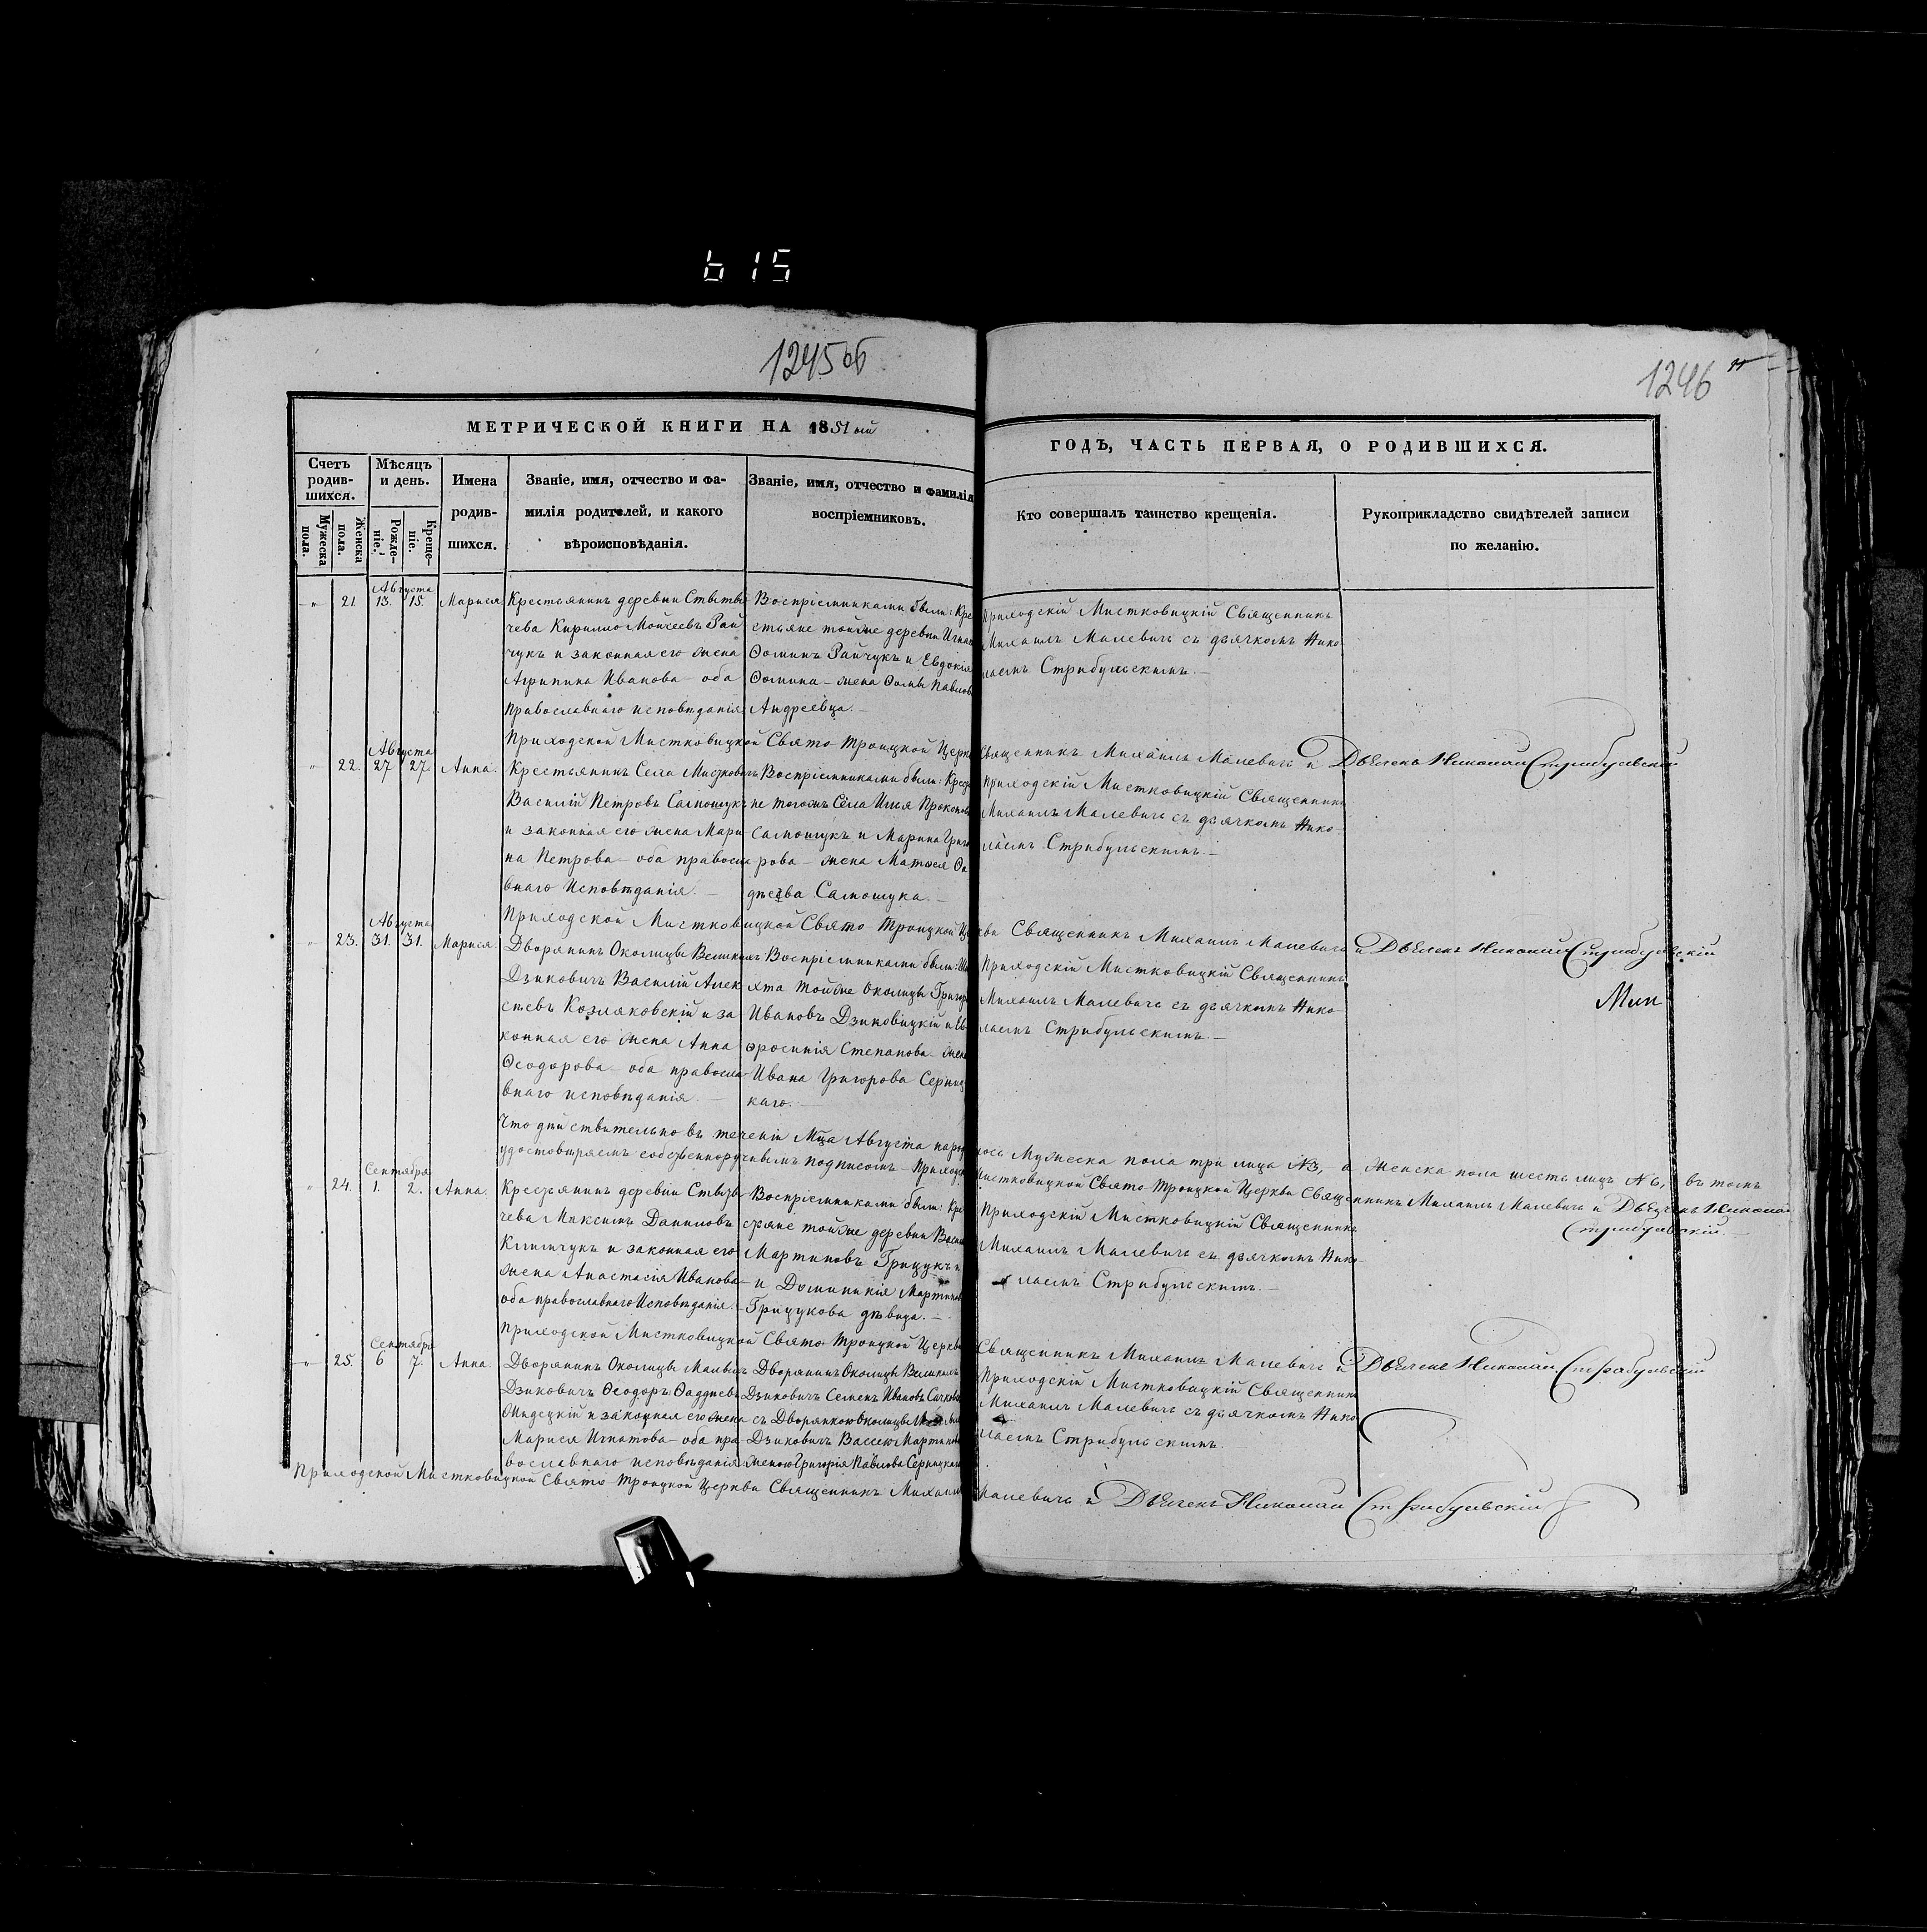 615
1245 об
1246
МЕТРИЧЕСКОЙ КНИГИ НА 1851 ый
ГОДЪ, ЧАСТЬ ПЕРВАЯ, О РОДИВШИХСЯ.
Счетъ родив-шихся.
Мужеска пола.
Женска пола.
Мѣсяцъ и день.
Рожде-ніе.
Креще-ніе.
Имена
родив-
шихся.
Званіе, имя, отчество и фа-
милія родителей, и какого
вѣроисповѣданія.
Званіе, имя, отчество и фамилія
воспріемниковъ.
Кто совершалъ таинство крещенія.
Рукоприкладство свидѣтелей записи
по желанію.
21. Августа 13. 15. Марися
Крестьянинъ деревни Ствты
чева Кирилло Моисеевъ Рай
чукъ и законная его жена
Агрипина Иванова – оба
православнаго исповѣданія
Воспріемниками были: Кре
стьяне тойже деревни Игнат
Ѳоминъ Райчукъ и Евдокія
Ѳомина – жена Ѳомы Павлов
Андреевца. –
Приходскій Мистковицкій Священникъ
Михаилъ Малевичъ съ дьячкомъ Нико
лаемъ Стрибульскимъ. –
Приходской Мистковицкой Свято Троицкой Церкв Священникъ Михаилъ Малевичъ и Дьячекъ Николай Стрибульскій
22. Августа 27 27. Анна.
Крестьянинъ Села Мистковичъ
Василій Петровъ Самошукъ
и законная его жена Мари
на Петрова – оба правосла
внаго Исповѣданія. –
Воспріемниками были: Крест
не тогожъ Села Илья Прокопов
Самошукъ и Марина Григо
рова – жена Матѳея Ѳа
дѣева Самошука. –
Приходскій Мистковицкій Священникъ
Михаилъ Малевичъ съ дьячкомъ Нико
лаемъ Стрибульскимъ. –
Приходской Мистковицкой Свято Троицкой Церкви Священникъ Михаилъ Малевичъ и Дьячекъ Николай Стрибульскій
23. Августа 31. 31. Марися.
Дворянинъ Околицы Великихъ
Дзиковичъ Василій Алек
сѣевъ Козляковскій и за
конная его жена Анна
Ѳеодорова – оба правосла
внаго исповѣданія. –
Воспріемниками были: Шля
хта тойже Околицы Григор
Ивановъ Дзиковицкій и Ев
фросинія Степанова – жена
Ивана Григорова Серниц
каго. –
Приходскій Мистковицкій Священникъ
Михаилъ Малевичъ съ дьячкомъ Нико
лаемъ Стрибульскимъ. –
Мин
Что дѣйствительно въ теченіи Мца Августа народ лось Мужеска пола три лица №3, а Женска пола шесть лицъ №6, въ томъ
удостовѣряемъ собственноручнымъ подписомъ – Приход Мистковицкой Свято Троицкой Церкви Священникъ Михаилъ Малевичъ и Дьячекъ Николай
Стрибульскій. –
24. Сентября 1. 2. Анна.
Крестьянинъ деревни Ствты
чева Максимъ Даниловъ
Климчукъ и законная его
жена Анастасія Иванова –
оба православнаго Исповѣданія.
Воспріемниками были: Кре
стьяне тойже деревни Васил
Мартиновъ Грицукъ и
и Доминикія Мартинов
Грицукова дѣвица. –
Приходскій Мистковицкій Священникъ
Михаилъ Малевичъ съ дьячкомъ Нико
лаемъ Стрибульскимъ. –
Приходской Мистковицкой Свято Троицкой Церкви Священникъ Михаилъ Малевичъ и Дьячекъ Николай Стрибульскій
25. Сентября 6 7. Анна.
Дворянинъ Околицы Малыхъ
Дзиковичъ Ѳеодоръ Ѳаддеевъ
и законная его жена
Марися Игнатова – оба пра
вославнаго исповѣданія
Дворянинъ Околицы Великихъ
Дзиковичъ Семенъ Ивановъ
съ Дворянкою Околицы
Дзиковичъ Вассею Мартинов
женою Григорія Павлова Серницкаго
Приходскій Мистковицкій Священникъ
Михаилъ Малевичъ съ дьячкомъ Нико
лаемъ Стрибульскимъ.
Приходской Мистковицкой Свято Троицкой Церкви Священникъ Михаилъ Малевичъ и Дьячекъ Николай Стрибульскій